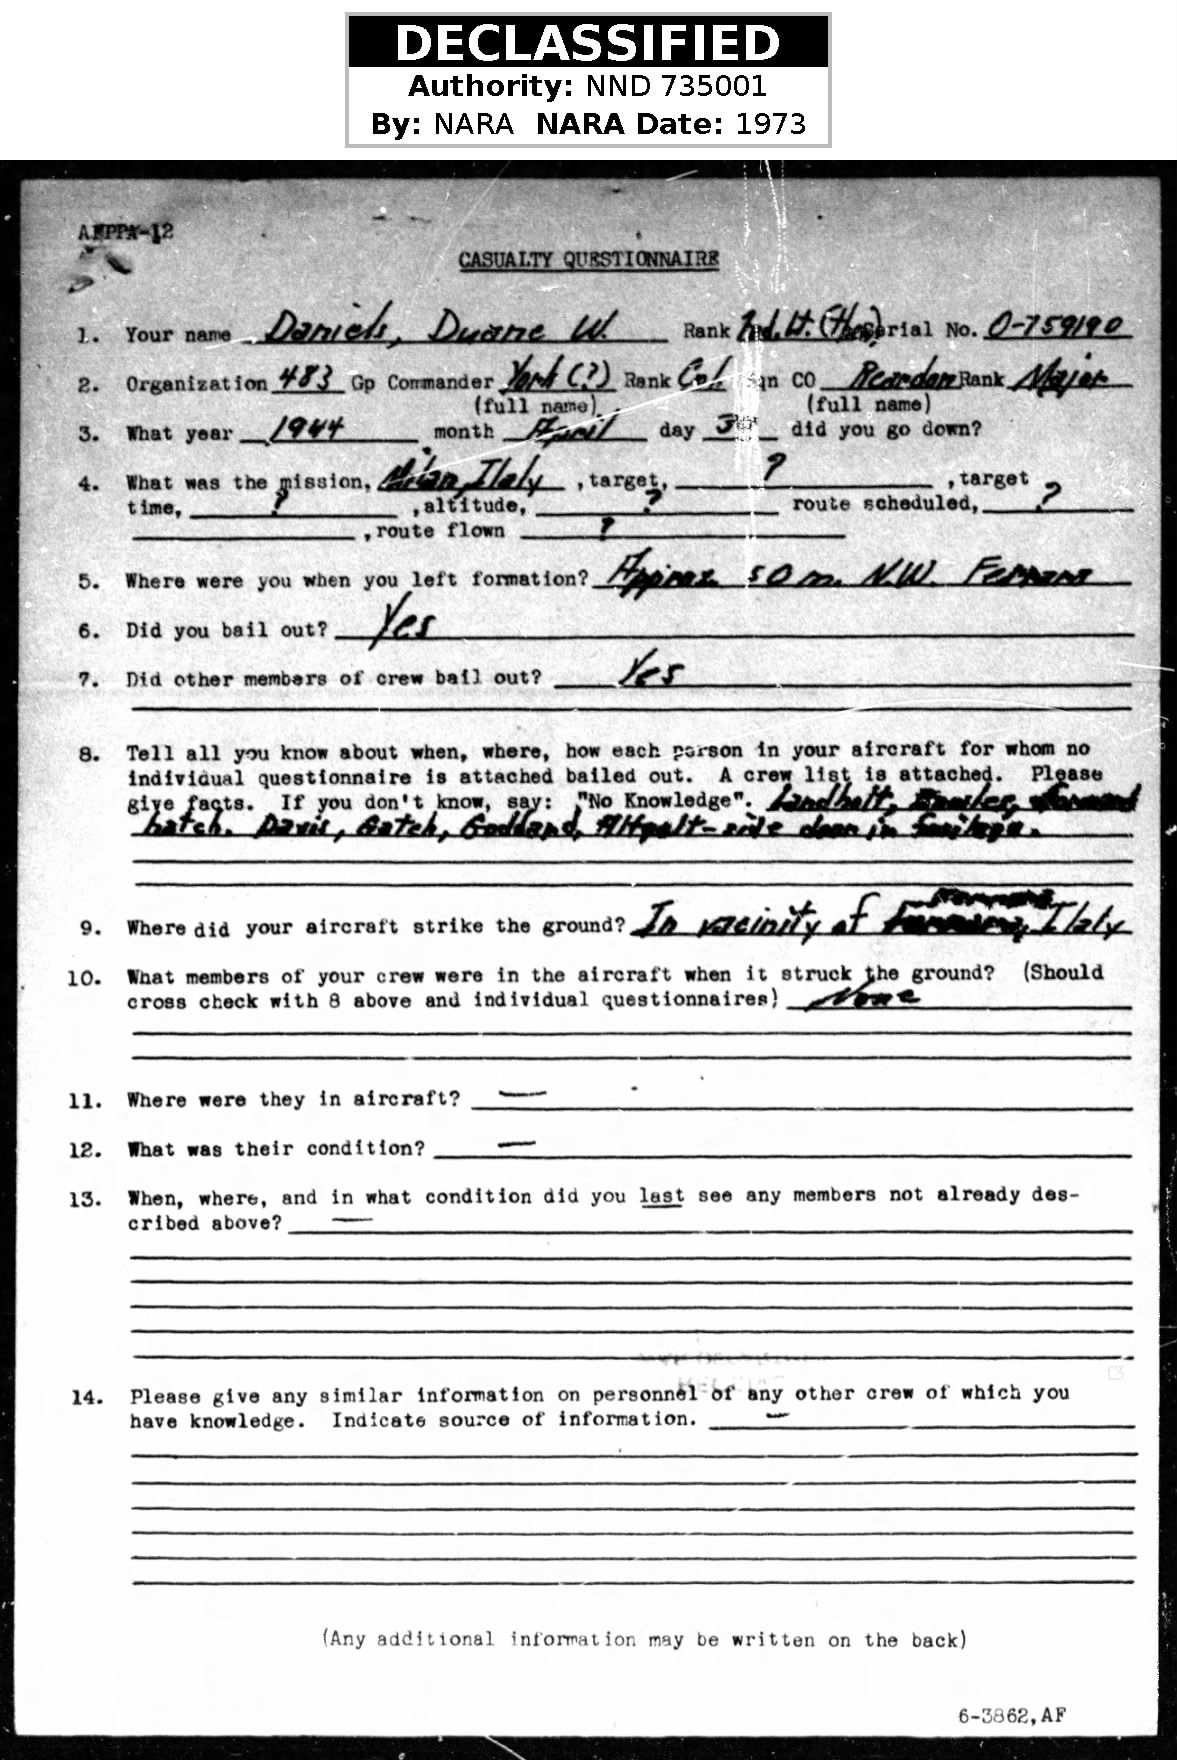 DECLASSIFIED
Authority: NND 735001
By: NARA NARA Date: 1973
AFPPA-12
CASUALTY QUESTIONNAIRE
1. Your name Daniels, Duane W. Rank 2nd. Lt. (then) Serial No. O-759190
2. Organization 483 Gp Commander York (?) Rank Col Sqn CO Reardon Rank Major
(full name) (full name)
3. What year 1944 month April day 30 did you go down?
4. What was the mission, Milan, Italy , target, ? , target
time, ? , altitude, ? route scheduled, ?
, route flown ?
5. Where were you when you left formation? Approx. 50 m. N.W. Ferrara
6. Did you bail out? Yes
7. Did other members of crew bail out? Yes
8. Tell all you know about when, where, how each person in your aircraft for whom no
individual questionnaire is attached bailed out. A crew list is attached. Please
give facts. If you don't know, say: "No Knowledge". Landholt, forward
hatch. Davis, Gatch, Goddard, - side door in fuselage.
9. Where did your aircraft strike the ground? In vacinity of Italy
10. What members of your crew were in the aircraft when it struck the ground? (Should
cross check with 8 above and individual questionnaires) None
11. Where were they in aircraft? —
12. What was their condition? —
13. When, where, and in what condition did you last see any members not already des-
cribed above? —
14. Please give any similar information on personnel of any other crew of which you
have knowledge. Indicate source of information. —
(Any additional information may be written on the back)
6-3862, AF